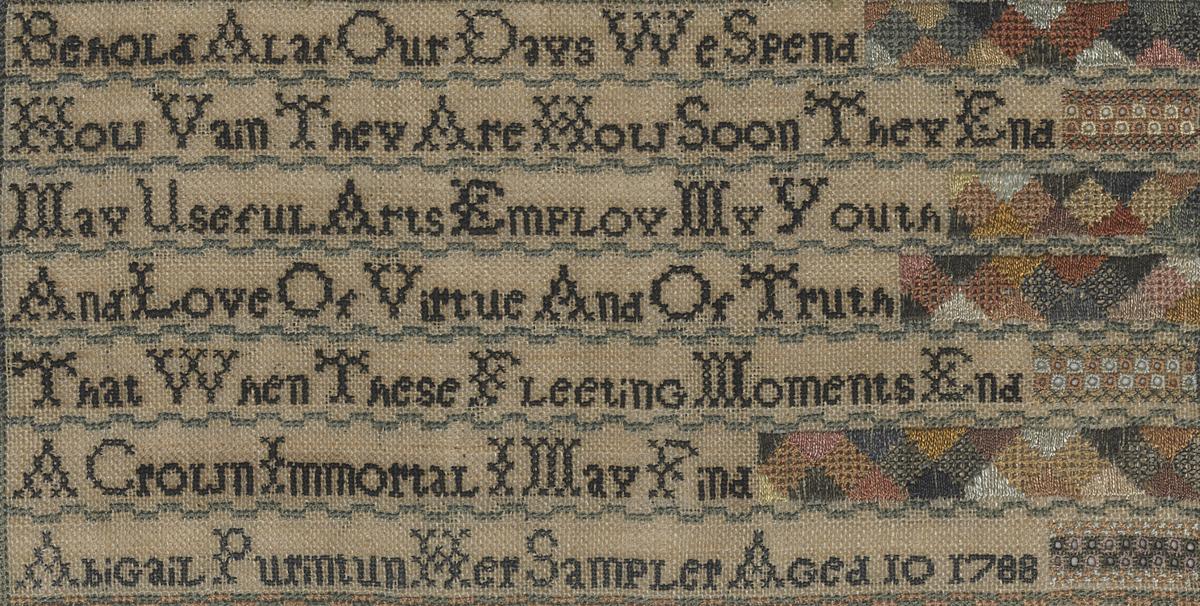 Behold Alas Our Days We Spend
How Vain They Are How Soon They End
May Useful Arts Employ My Youth
And Love Of Virtue And Of Truth
That When These Fleeting Moments End
A Crown Immortal I May Find
Abigail Purintun Her Sampler Aged 10 1788